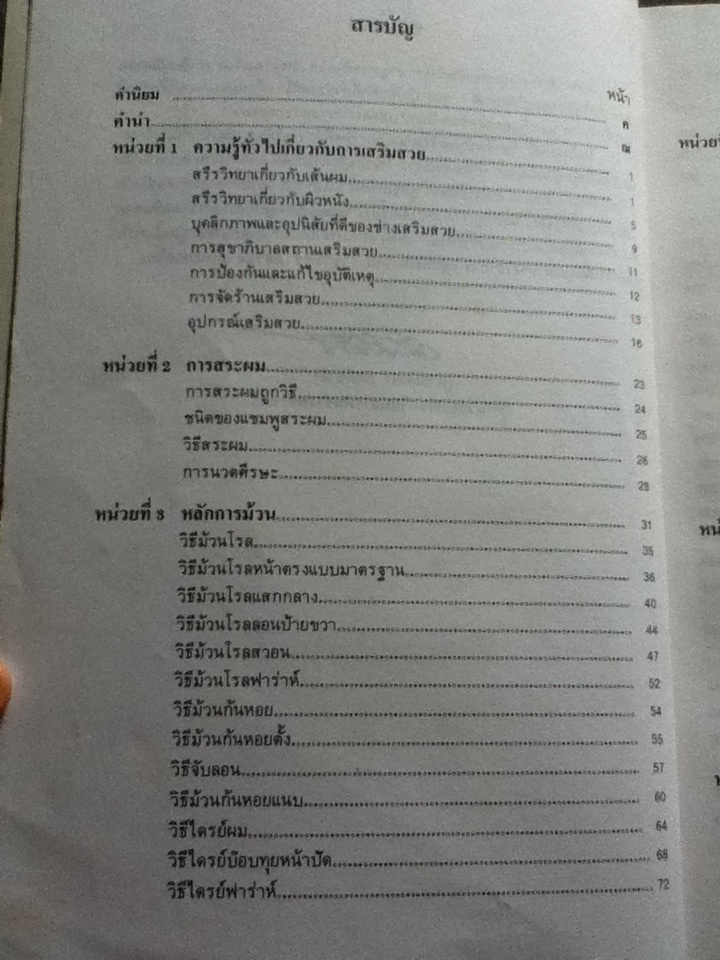 สารบัญ
หน้า
คำนิยม ค
คำนำ ฌ
หน่วยที่ 1 ความรู้ทั่วไปเกี่ยวกับการเสริมสวย 1
สรีรวิทยาเกี่ยวกับเส้นผม 1
สรีรวิทยาเกี่ยวกับผิวหนัง 5
บุคลิกภาพและอุปนิสัยที่ดีของช่างเสริมสวย 9
การสุขาภิบาลสถานเสริมสวย 11
การป้องกันและแก้ไขอุบัติเหตุ 12
การจัดร้านเสริมสวย 13
อุปกรณ์เสริมสวย 16
หน่วยที่ 2 การสระผม 23
การสระผมถูกวิธี 24
ชนิดของแชมพูสระผม 25
วิธีสระผม 26
การนวดศีรษะ 29
หน่วยที่ 3 หลักการม้วน 31
วิธีม้วนโรล 35
วิธีม้วนโรลหน้าตรงแบบมาตรฐาน 36
วิธีม้วนโรลแสกกลาง 40
วิธีม้วนโรลลอนป้ายขวา 44
วิธีม้วนโรลสวอน 47
วิธีม้วนโรลฟาร่าห์ 52
วิธีม้วนก้นหอย 54
วิธีม้วนก้นหอยตั้ง 55
วิธีจับลอน 57
วิธีม้วนก้นหอยแนบ 60
วิธีไดรย์ผม 64
วิธีไดรย์บ๊อบทุยหน้าปัด 68
วิธีไดรย์ฟาร่าห์ 72
หน่วยที่